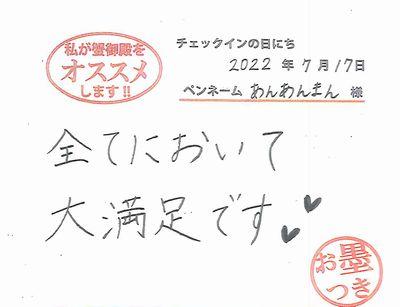 私が蟹御殿を
オススメ
します!!
チェックインの日にち
2022 年 7 月 17 日
ペンネーム あんあんまん 様
全てにおいて
大満足です
お墨
つき